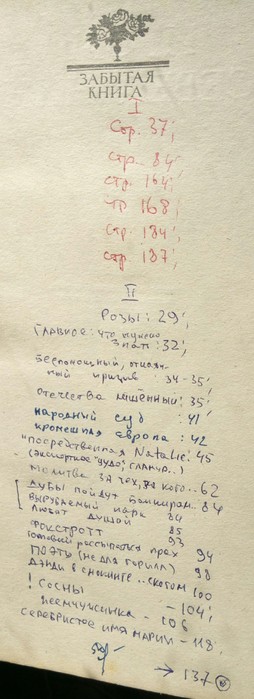 ЗАБЫТАЯ
КНИГА
I
Стр. 37;
стр. 84;
стр. 164;
тр 168,
стр. 184;
стр. 187;
II
Розы: 29;
Главное: что нужно
знать: 32;
беспомощный,
ный призыв : 34-35;
отечества лишённый: 35;
народный суд : 41
кромешная европа : 42
"посредственная Natalie: 45
(экспортное "чудо", гламур..)
молитва за тех, за кого..62
дубы пойдут банкирам. 84
Вырубленный парк 84
Любят душой 85
Фокстротт 93
готовый рассыпаться прах 94
Поэты (не для горилл) 98
Дэнди в смокинге ..скотом 100
! Сосны - 104;
жемчужинка - 106
серебристое имя марии - 118,
→ 137